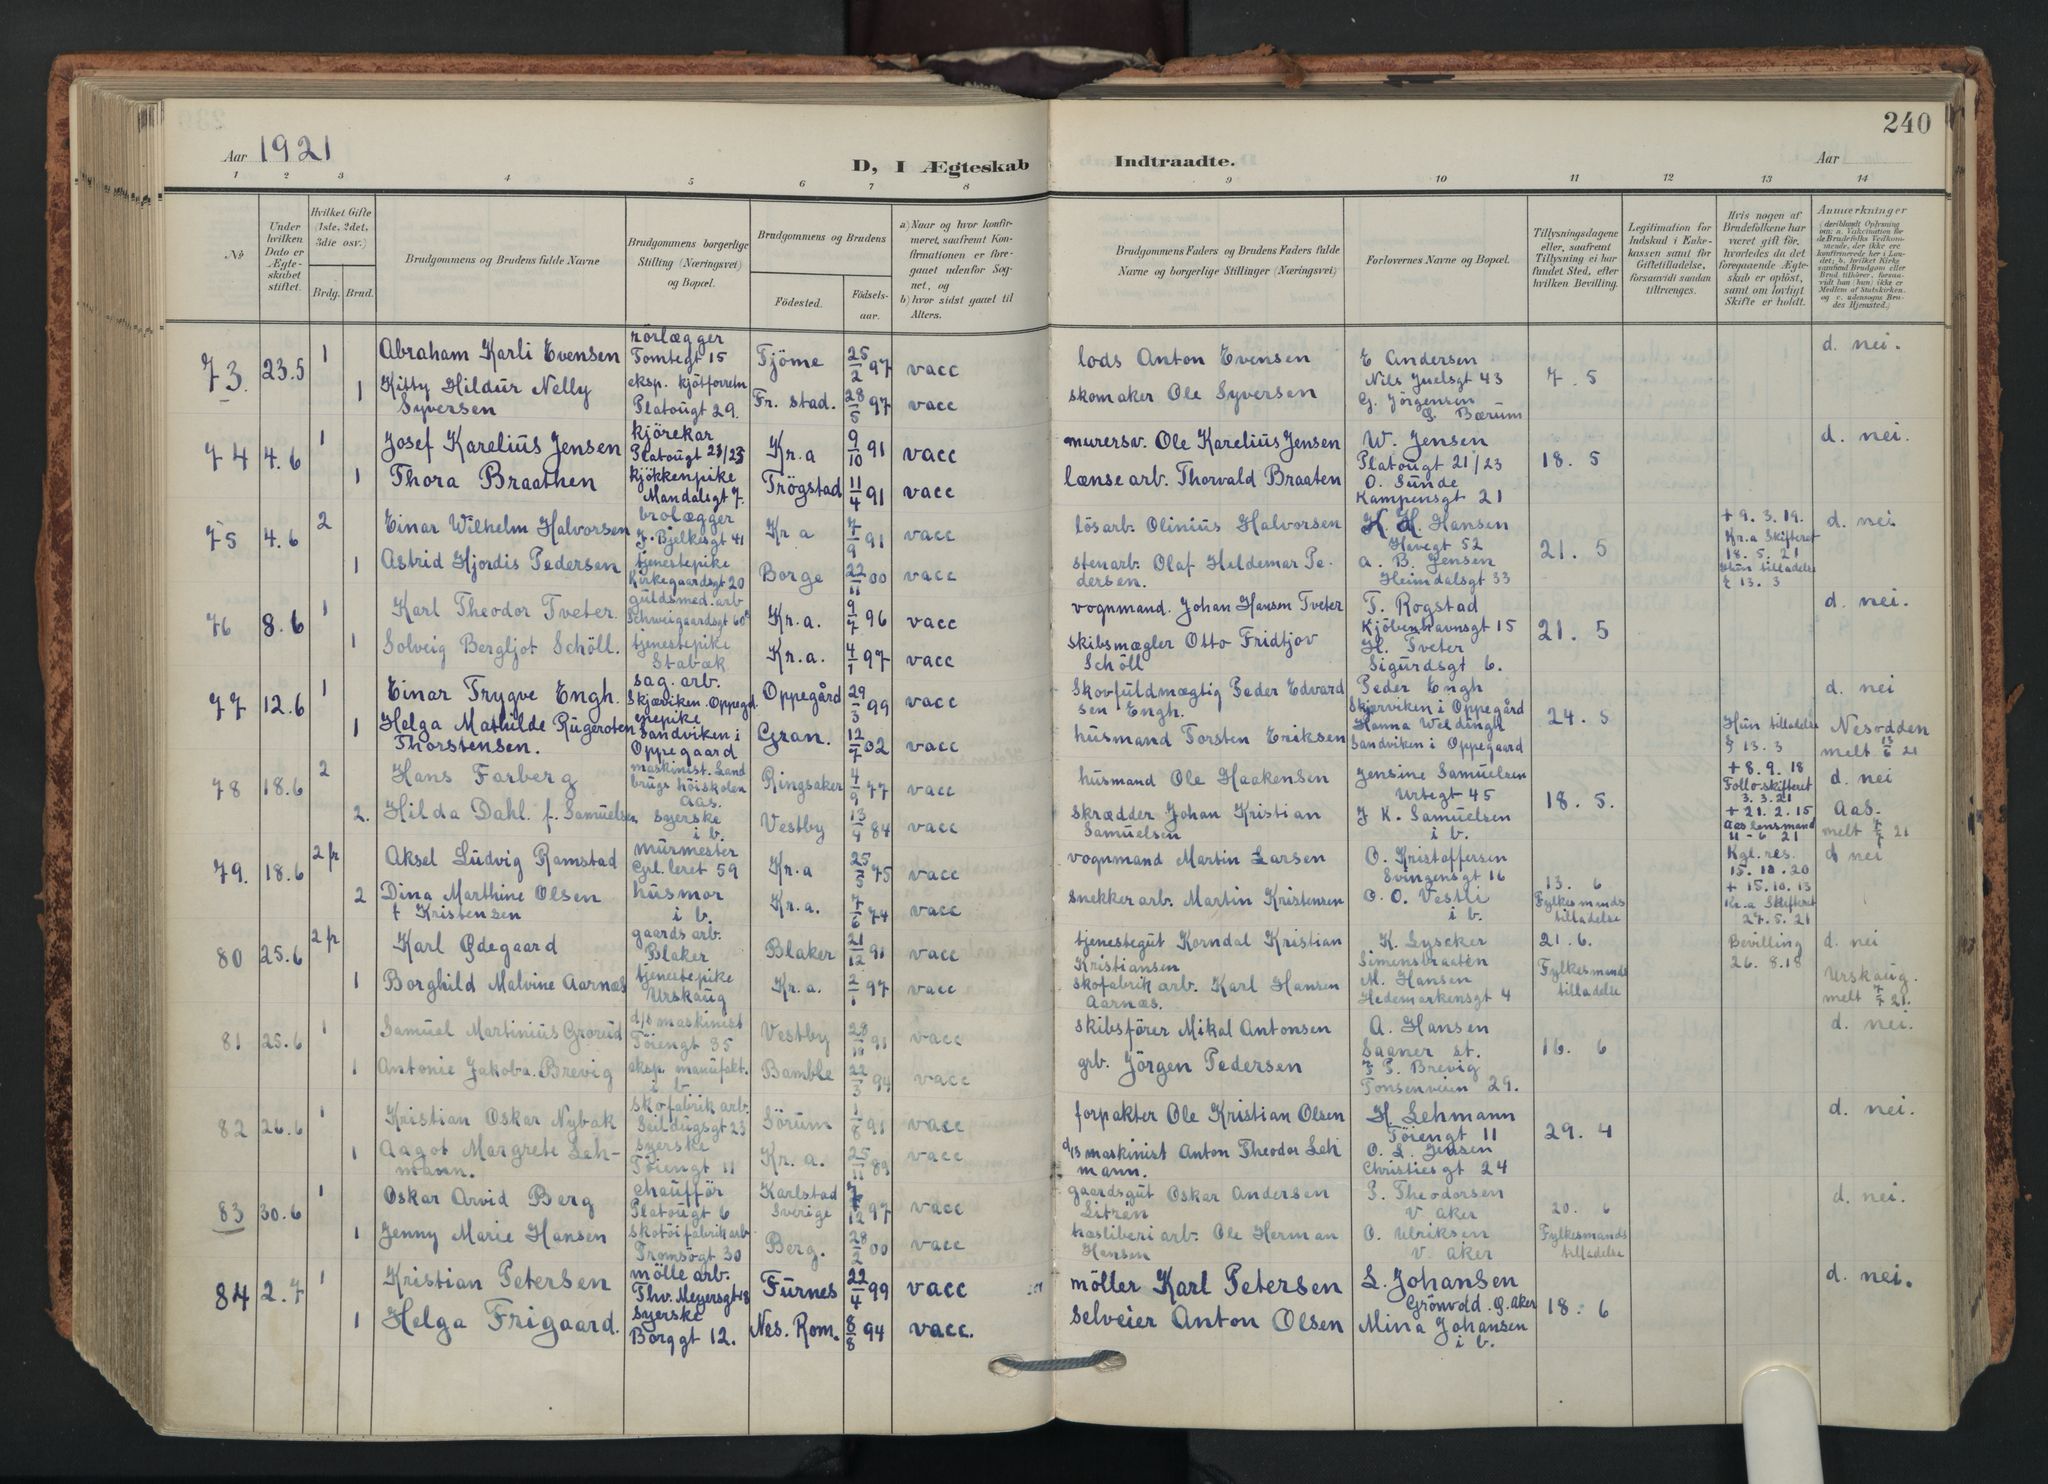 240
Aar 1921
D, I Ægteskab Indtraadte.
Aar
1 2 3 4 5 6 7 8 9 10 11 12 13 14
No
Under hvilken Dato er Ægteskabet stiftet.
Hvilket Gifte (1ste, 2det, 3die osv.)
Brdg. Brud.
Brudgommens og Brudens fulde Navne
Brudgommens borgerlige Stilling (Næringsvei) og Bopæl.
Brudgommens og Brudens
Fødested. Födselsaar.
a) Naar og hvor konfirmeret, saafremt Konfirmationen er foregaaet udenfor Sognet, og
b) hvor sidst gaaet til Alters.
Brudgommens Faders og Brudens Faders fulde Navne og borgerlige Stillinger (Næringsvei)
Forlovernes Navne og Bopæl.
Tillysningsdagene eller, saafremt Tillysning ei har fundet Sted, efter hvilken Bevilling.
Legitimation for Indskud i Enkekassen samt for Giftetilladelse, forsaavidt saadan tiltrænges.
Hvis nogen af Brudefolkene har været gift før, hvorledes da det foregaaende Ægteskab er opløst, samt om lovligt Skifte er holdt.
Anmærkninger
73. 23.5 1 Abraham Karli Evensen rörlægger Tomtegt 15 Tjöme 25/2 97 vacc lods Anton Evensen E Andersen Nils Juelsgt 43 7. 5 d. nei.
1 Kitty Hildur Nelly Syversen eksp. kjötforretn Platougt 29. Fr. stad. 28/5 97 vacc skomaker Ole Syversen G. Jörgensen Ö. Bærum
74 4.6 1 Josef Karelius Jensen kjörekar Platougt 23/25 Kr.a 9/10 91 vacc murersv. Ole Karelius Jensen W. Jensen Platougt 21/23 18. 5 d. nei.
1 Thora Braathen kjökkenpike Mandalsgt 7. Trögstad 11/4 91 vacc lænsearb. Thorvald Braaten O. Sunde Kampensgt 21
75 4.6 2 Einar Wilhelm Halvorsen brolægger J. Bjelkesgt 41 Kr a 7/9 91 vacc lösarb. Olinius Halvorsen H. H. Hansen Havegt 52 21. 5 + 9. 3. 19. Kr.a Skifteret 18. 5. 21 d. nei
1 Astrid Hjordis Pedersen tjenestepike Kirkegaardsgt 20 Borge 22/11 00 vacc stenarb. Olaf Hildemar Pedersen. A. B. Jensen Heimdalsgt 33 Hun tilladelse § 13. 3
76 8.6 1 Karl Theodor Tveter. guldsmed. arb Schweigaardsgt 60 Kr.a. 9/7 96 vacc vognmand. Johan Hansen Tveter T. Rogstad Kjöbenhavnsgt 15 21. 5 d. nei.
1 Solveig Bergljot Schöll. tjenestepike Stabæk Kr.a. 4/1 97 vacc skibsmægler Otto Fridtjov Schöll H. Tveter Sigurdsgt 6.
77 12.6 1 Einar Trygve Engh. sag. arb. Skjærviken. Oppegd. Oppegård 29/3 99 vacc Skovfuldmægtig Peder Edvardsen Engh. Peder Engh Skjærviken i Oppegård 24. 5 d. nei
1 Helga Mathilde Rugeroten Thorstensen. Sandviken i Oppegaard Gran. 12/7 02 vacc husmand Torsten Eriksen Hanna Weldingh Sandviken i Oppegaard Hun tilladelse § 13. 3 Nesodden melt 13/6 21
78 18.6 2 Hans Farberg maskinist. Landbrugshöiskolen Aas. Ringsaker 4/9 77 vacc husmand Ole Haakensen Jensine Samuelsen Urtegt 45 18. 5. + 8. 9. 18 Follo skifteret 3. 3. 21 d. nei
2. Hilda Dahl f. Samuelsen syerske i b. Vestby 13/4 84 vacc skrædder Johan Kristian Samuelsen J K. Samuelsen i b. + 21. 2. 15 Aas lensmand 11 - 6 21 Aas. melt 7/7 21
79. 18.6 2 fr Aksel Ludvig Ramstad murmester Grl. leret 59 Kr.a 25/5 75 vacc vognmand Martin Larsen O. Kristoffersen Svingensgt 16 13. 6 Fylkesmands tilladelse Kgl. res. 15. 10. 20 d nei
2 Dina Marthine Olsen f Kristensen husmor i b. Kr.a. 7/6 74 vacc snekkerarb. Martin Kristensen O. O. Vestli i b. + 15. 10. 13 Kr.a Skifteret 27. 5. 21
80 25.6 2 fr Karl Ødegaard gaardsarb. Blaker Blaker 21/12 91 vacc tjenestegut Korndal Kristian Kristiansen K. Lyseker Simensbraaten 21. 6. Fylkesmands tilladelse Bevilling 26. 8. 18 d. nei
1 Borghild Malvine Aarnæs tjenestepike Urskaug Kr.a. 2/1 97 vacc skofabrik arb. Karl Hansen Aarnæs. M. Hansen Hedemarkensgt 4 Urskaug. melt 7/7 21.
81 25.6 1 Samuel Martinius Grorud d/s maskinist Töiengt 35 Vestby 28/10 91 vacc skibsförer Mikal Antonsen A. Hansen Saaner st. 16. 6 d. nei.
1 Antonie Jakoba. Brevig eksp. manufakt. i b. Bamble 22/3 94 vacc grb. Jörgen Pedersen J. P. Brevig Tonsenveien 29.
82 26.6 1 Kristian Oskar Nybak skofabrik arb. Seildugsgt 23 Sörum 1/8 91 vacc forpakter Ole Kristian Olsen H. Lehmann Töiengt 11 29. 4 d. nei.
1 Aagot Margrete Lehmann. syerske Töiengt 11 Kr. a. 25/11 89 vacc d/s maskinist Anton Theodor Lehmann. O. L. Jensen Christiesgt 24
83 30.6 1 Oskar Arvid Berg chaufför Platougt 6 Karlstad Sverige 7/12 97 vacc gaardsgut Oskar Andersen Liträn P. Theodorsen V. Aker 20. 6 Fylkesmands tilladelse d. nei.
1 Jenny Marie Hansen skotöifabrik arb. Tromsögt 30 Berg. 28/2 00 vacc arb. Ole Herman Hansen O. Ulriksen V. Aker
84 2.7 1 Kristian Petersen mölle arb. Thv. Meyersgt 18 Furnes 22/4 99 vacc möller Karl Petersen L. Johansen Grönvold. Ö. Aker 18. 6 d. nei.
1 Helga Frigaard. syerske Borggt 12. Nes. Rom. 8/8 94 vacc. selveier Anton Olsen Mina Johansen i b.